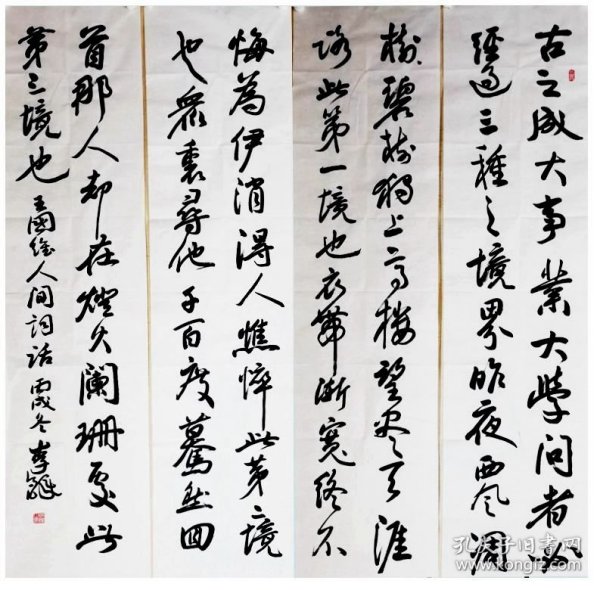 古之成大事業大學問者必
經過三種之境界昨夜西風凋
樹碧樹獨上高樓望盡天涯
路此第一境也衣帶漸寬終不
悔為伊消得人憔悴此第二境
也眾裏尋他千百度驀然回
首那人却在燈火闌珊處此
第三境也 王國維人間詞話 丙戌冬 李
孔夫子旧书网